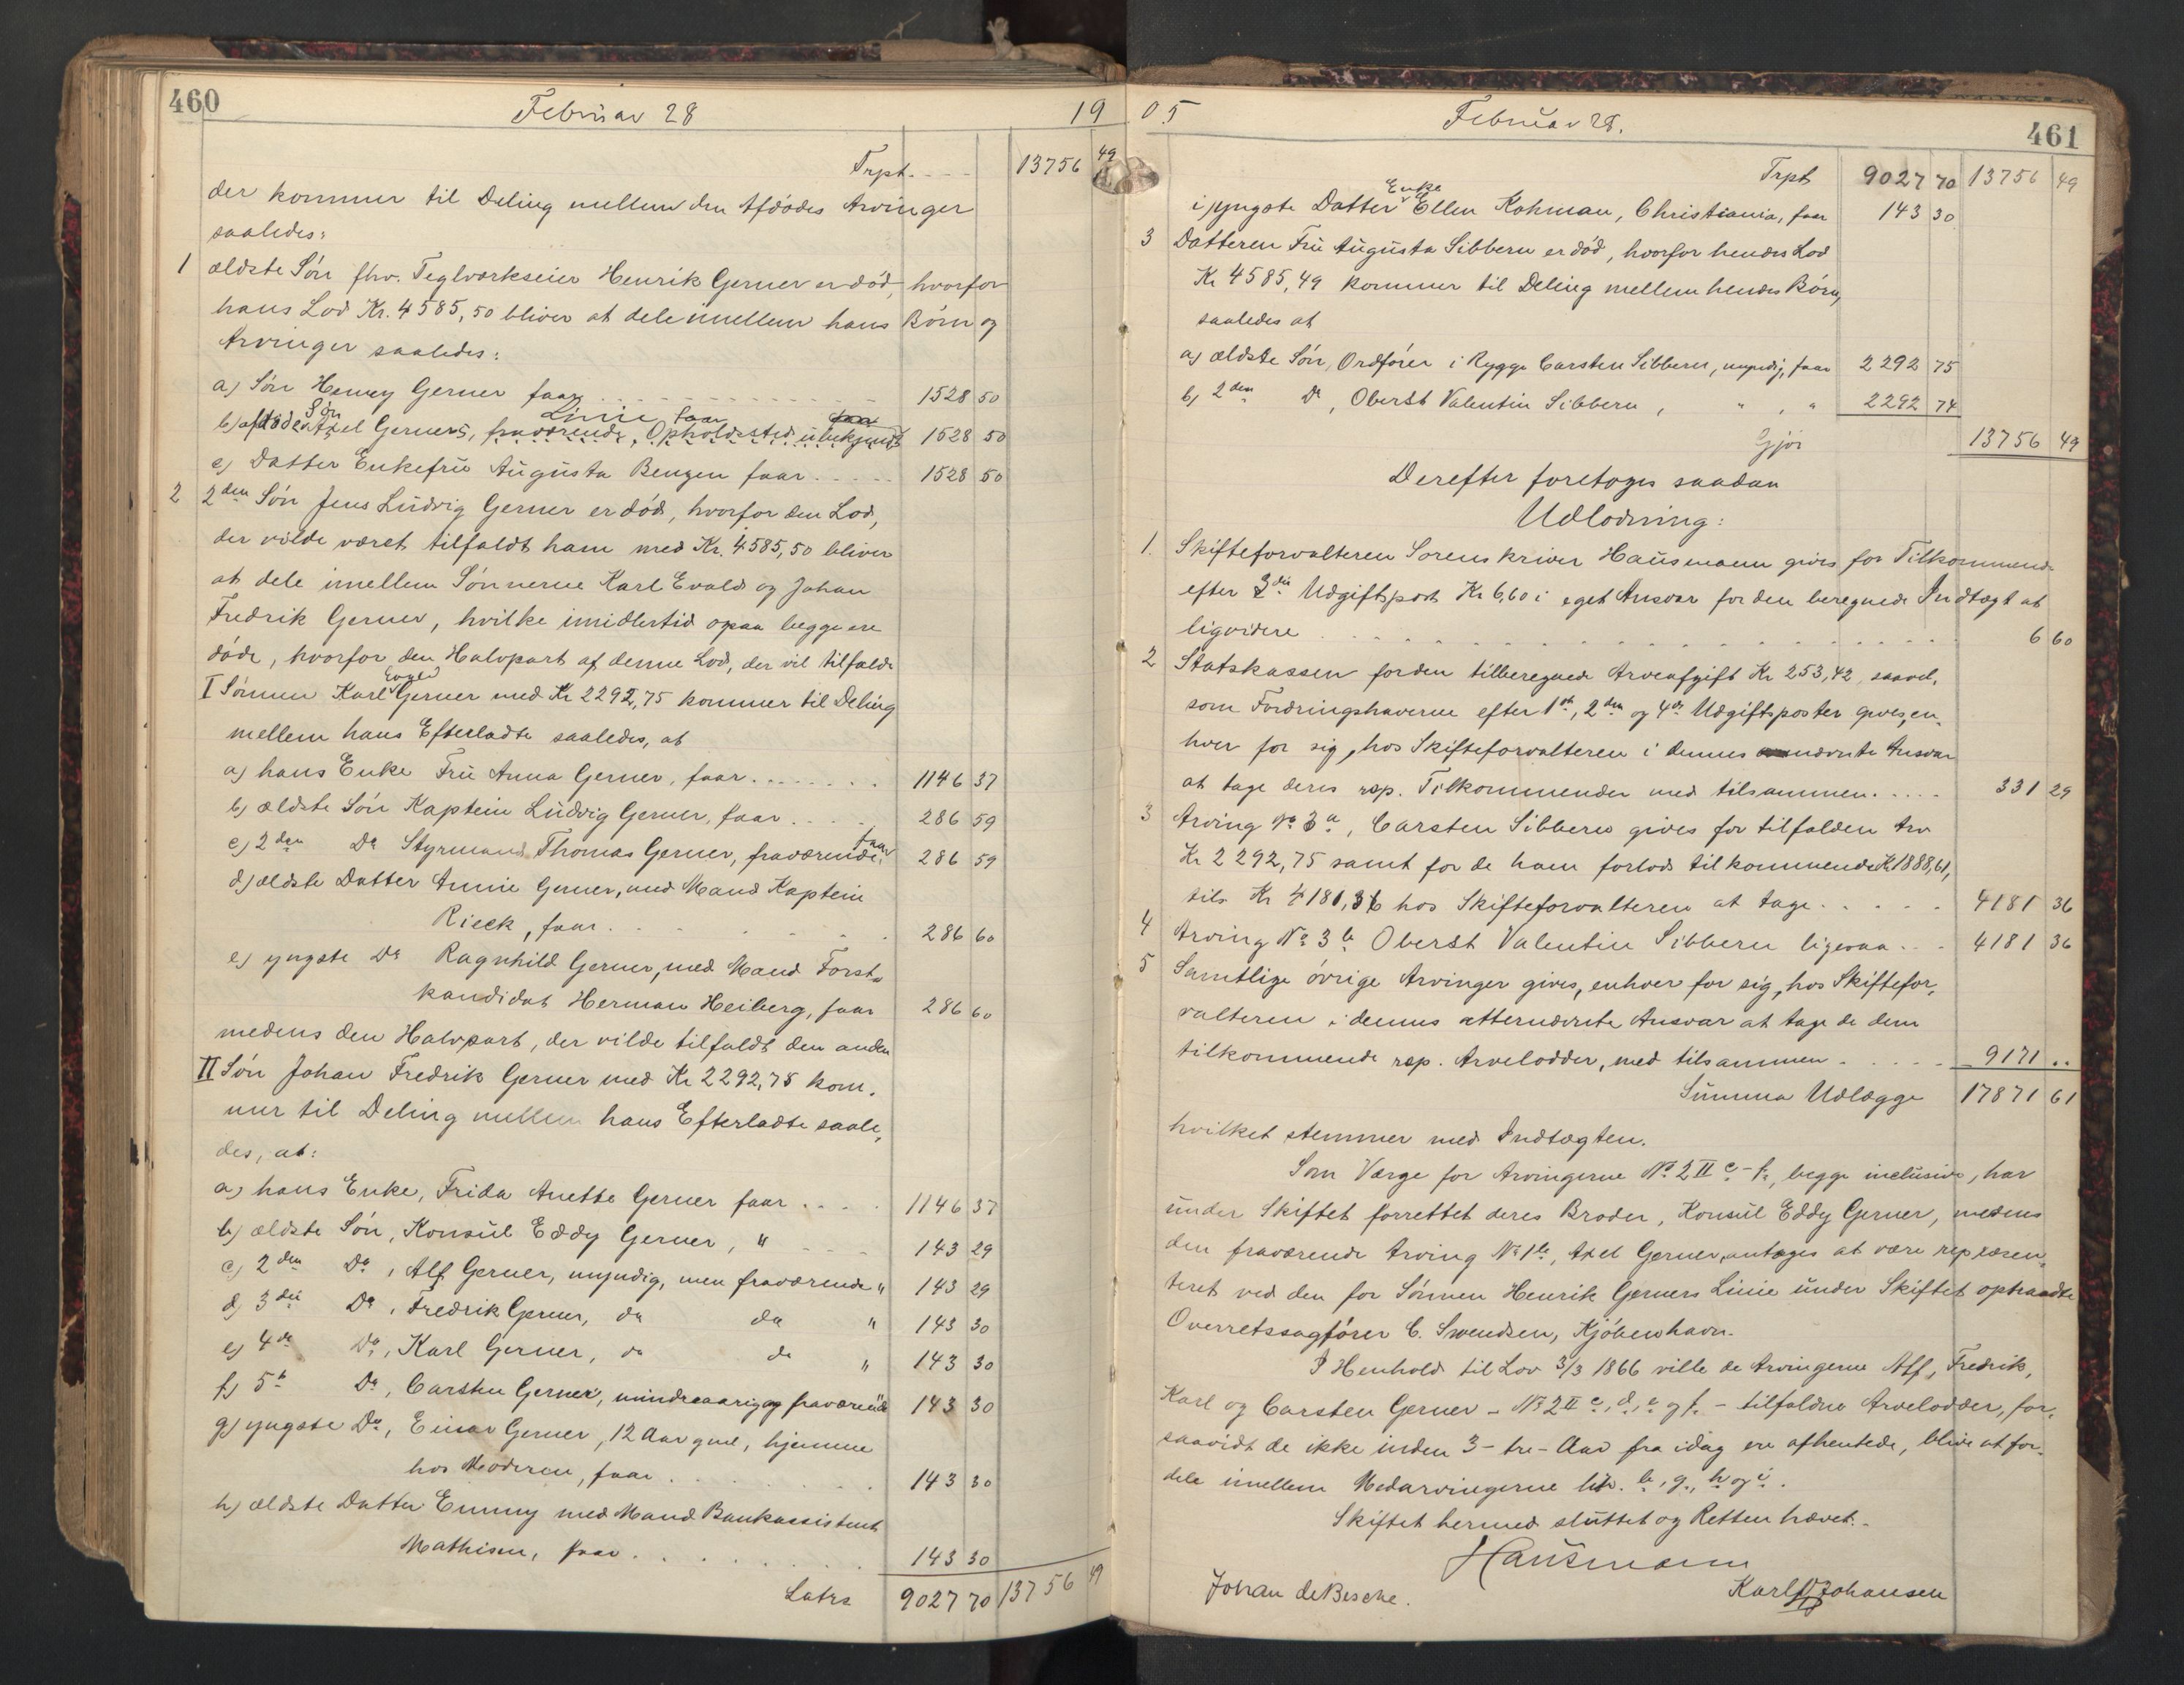 460
Februar 28
19
Trpt. 13756 49
der kommer til Deling mellem den Afdødes Arvinger
saaledes:
1 ældste Søn fhv. Teglværkseier Henrik Gerner er død, hvorfor
hans Lod Kr. 4585,50 bliver at dele imellem hans Børn og
Arvinger saaledes:
a) Søn Henry Gerner faar 1528 50
b) afdøde Søn Axel Gerners Linie faar, fraværende, Opholdssted ubekjendt 1528 50
c) Datter Enkefru Augusta Benzen faar 1528 50
2 2den Søn Jens Ludvig Gerner er død, hvorfor den Lod,
der vilde været tilfaldt ham med Kr. 4585,50 bliver
at dele imellem Sønnerne Karl Evald og Johan
Fredrik Gerner, hvilke imidlertid ogsaa begge ere
døde, hvorfor den Halvpart af denne Lod, der vil tilfalde
I Sønnen Karl Evald Gerner med Kr 2292,75 kommer til Deling
mellem hans Efterladte saaledes, at
a) hans Enke Fru Anna Gerner, faar 1146 37
b) ældste Søn Kaptein Ludvig Gerner, faar 286 59
c) 2den Do Styrmand Thomas Gerner, fraværende, faar 286 59
d) ældste Datter Annie Gerner, med Mand Kaptein
Rieck, faar 286 60
e) yngste Do Ragnhild Gerner, med Mand Forst-
kandidat Herman Heiberg, faar 286 60
medens den Halvpart, der vilde tilfaldt den anden
II Søn Johan Fredrik Gerner med Kr 2292,75 kom-
mer til Deling mellem hans Efterladte saale-
des, at:
a) hans Enke, Frida Anette Gerner faar 1146 37
b) ældste Søn, Konsul Eddy Gerner, " 143 29
c) 2den Do, Alf Gerner, myndig, men fraværende " 143 29
d) 3die Do, Fredrik Gerner, do do " 143 30
e) 4de Do, Karl Gerner, do do " 143 30
f) 5te Do, Carsten Gerner, mindreaarig og fraværende " 143 30
g) yngste Do, Einar Gerner, 12 Aar gml, hjemme
hos Moderen, faar 143 30
h) ældste Datter Emmy med Mand Bankassistent
Mathisen, faar 143 30
Latrs 9027 70 13756 49
05
Februar 28.
461
Trpt 9027 70 13756 49
i yngste Datter Enke Ellen Kohman, Christiania, faar 143 30
3 Datteren Fru Augusta Sibbern er død, hvorfor hendes Lod
Kr 4585,49 kommer til Deling mellem hendes Børn,
saaledes at
a) ældste Søn, Ordfører i Rygge Carsten Sibbern, myndig, faar 2292 75
b) 2den Do, Oberst Valentin Sibbern, " , " 2292 74
Gjør 13756 49
Derefter foretoges saadan
Udlodning:
1. Skifteforvalteren Sorenskriver Hausmann gives for Tilkommende
efter 3die Udgiftspost Kr 6,60 i eget Ansvar for den beregnede Indtægt at
liqvidere 6 60
2 Statskassen for den tilberegnede Arveafgift Kr 253,42, saavel-
som Fordringshaverne efter 1ste, 2den og 4de Udgiftsposter gives, en-
hver for sig, hos Skifteforvalteren i dennes nævnte Ansvar
at tage deres resp. Tilkommender med tilsammen 331 29
3 Arving No 3a, Carsten Sibbern gives for tilfalden Arv
Kr 2292,75 samt for de ham forlods tilkommende Kr 1888,61,
tils. Kr 4181,36 hos Skifteforvalteren at tage 4181 36
4 Arving No 3b Oberst Valentin Sibbern ligesaa 4181 36
5 Samtlige øvrige Arvinger gives, enhver for sig, hos Skiftefor-
valteren i dennes atternævnte Ansvar at tage de dem
tilkommende resp. Arvelodder, med tilsammen 9171 ..
Summa Udlægge 17871 61
hvilket stemmer med Indtægten.
Som Værge for Arvingerne No 2 II c - f, begge inclusive, har
under Skiftet forrettet deres Broder, Konsul Eddy Gerner, medens
den fraværende Arving No 1b, Axel Gerner, antages at være repræsen-
teret ved den for Sønnen Henrik Gerners Linie under Skiftet optraadte
Overretssagfører C. Svendsen, Kjøbenhavn.
I Henhold til Lov 3/3 1866 ville de Arvingerne Alf, Fredrik,
Karl og Carsten Gerner - No 2 II c, d, e og f - tilfaldne Arvelodder, for-
saavidt de ikke inden 3 - tre - Aar fra idag ere afhentede, blive at for-
dele imellem Medarvingerne litr. b, g, h og i.
Skiftet hermed sluttet og Retten hævet.
Hausmann
Johan de Besche.
Karl Johansen